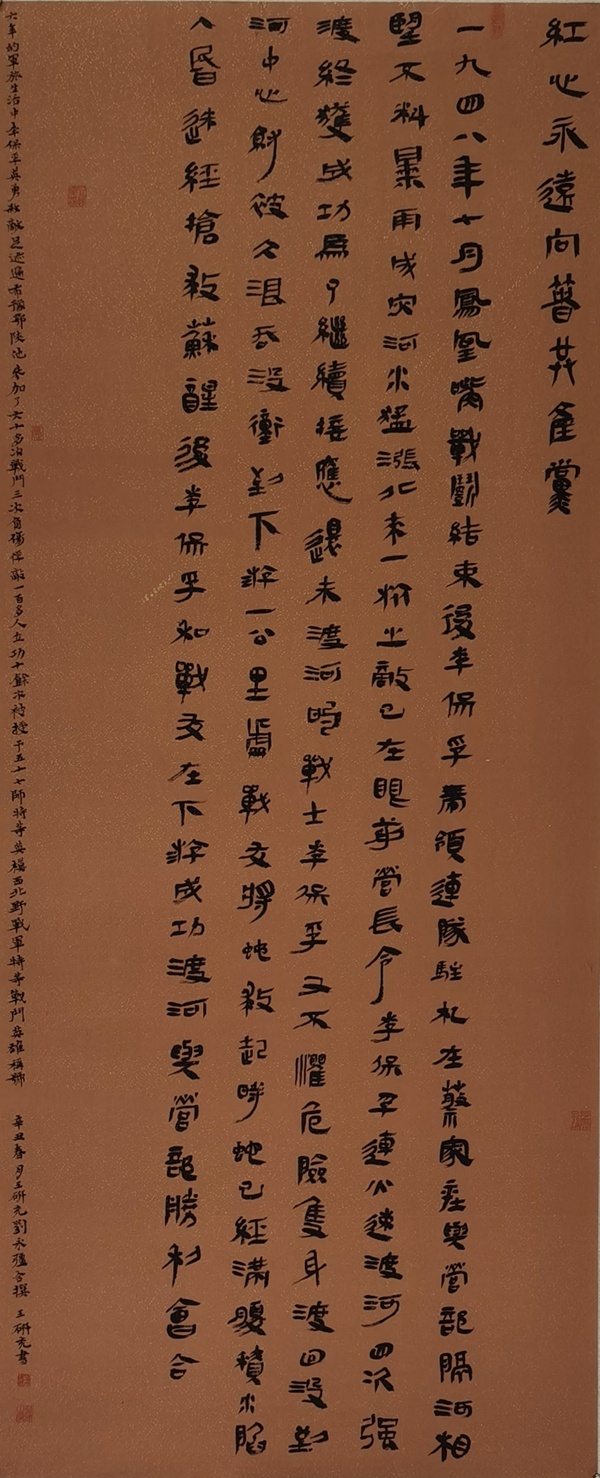 紅心永遠向着共產黨
一九四八年七月鳳凰嘴戰鬭結束後李保孚帶領連隊駐札在蔡家莊與營部隔河相
望不料暴雨成灾河水猛漲北來一股之敵已在眼前營長令李保孚連火速渡河四次强
渡終獲成功爲了繼續接應還未渡河的戰士李保孚又不懼危險隻身渡回没到
河中心財被久浪吞没衝到下游一公里處戰友將他救起時他已經满腹積水陷
入昏迷經搶救蘇醒後李保孚和戰友在下游成功渡河與營部勝利會合
六年的軍旅生活中李保孚英勇殺敵足迹遍布豫鄂陝他参加了六十多次戰鬥三次負傷俘敵一百多人立功十餘次被授予五十七師特等英雄西北野戰軍特等戰鬥英雄稱號
辛丑春月王研充劉永蘊合撰 王研充書